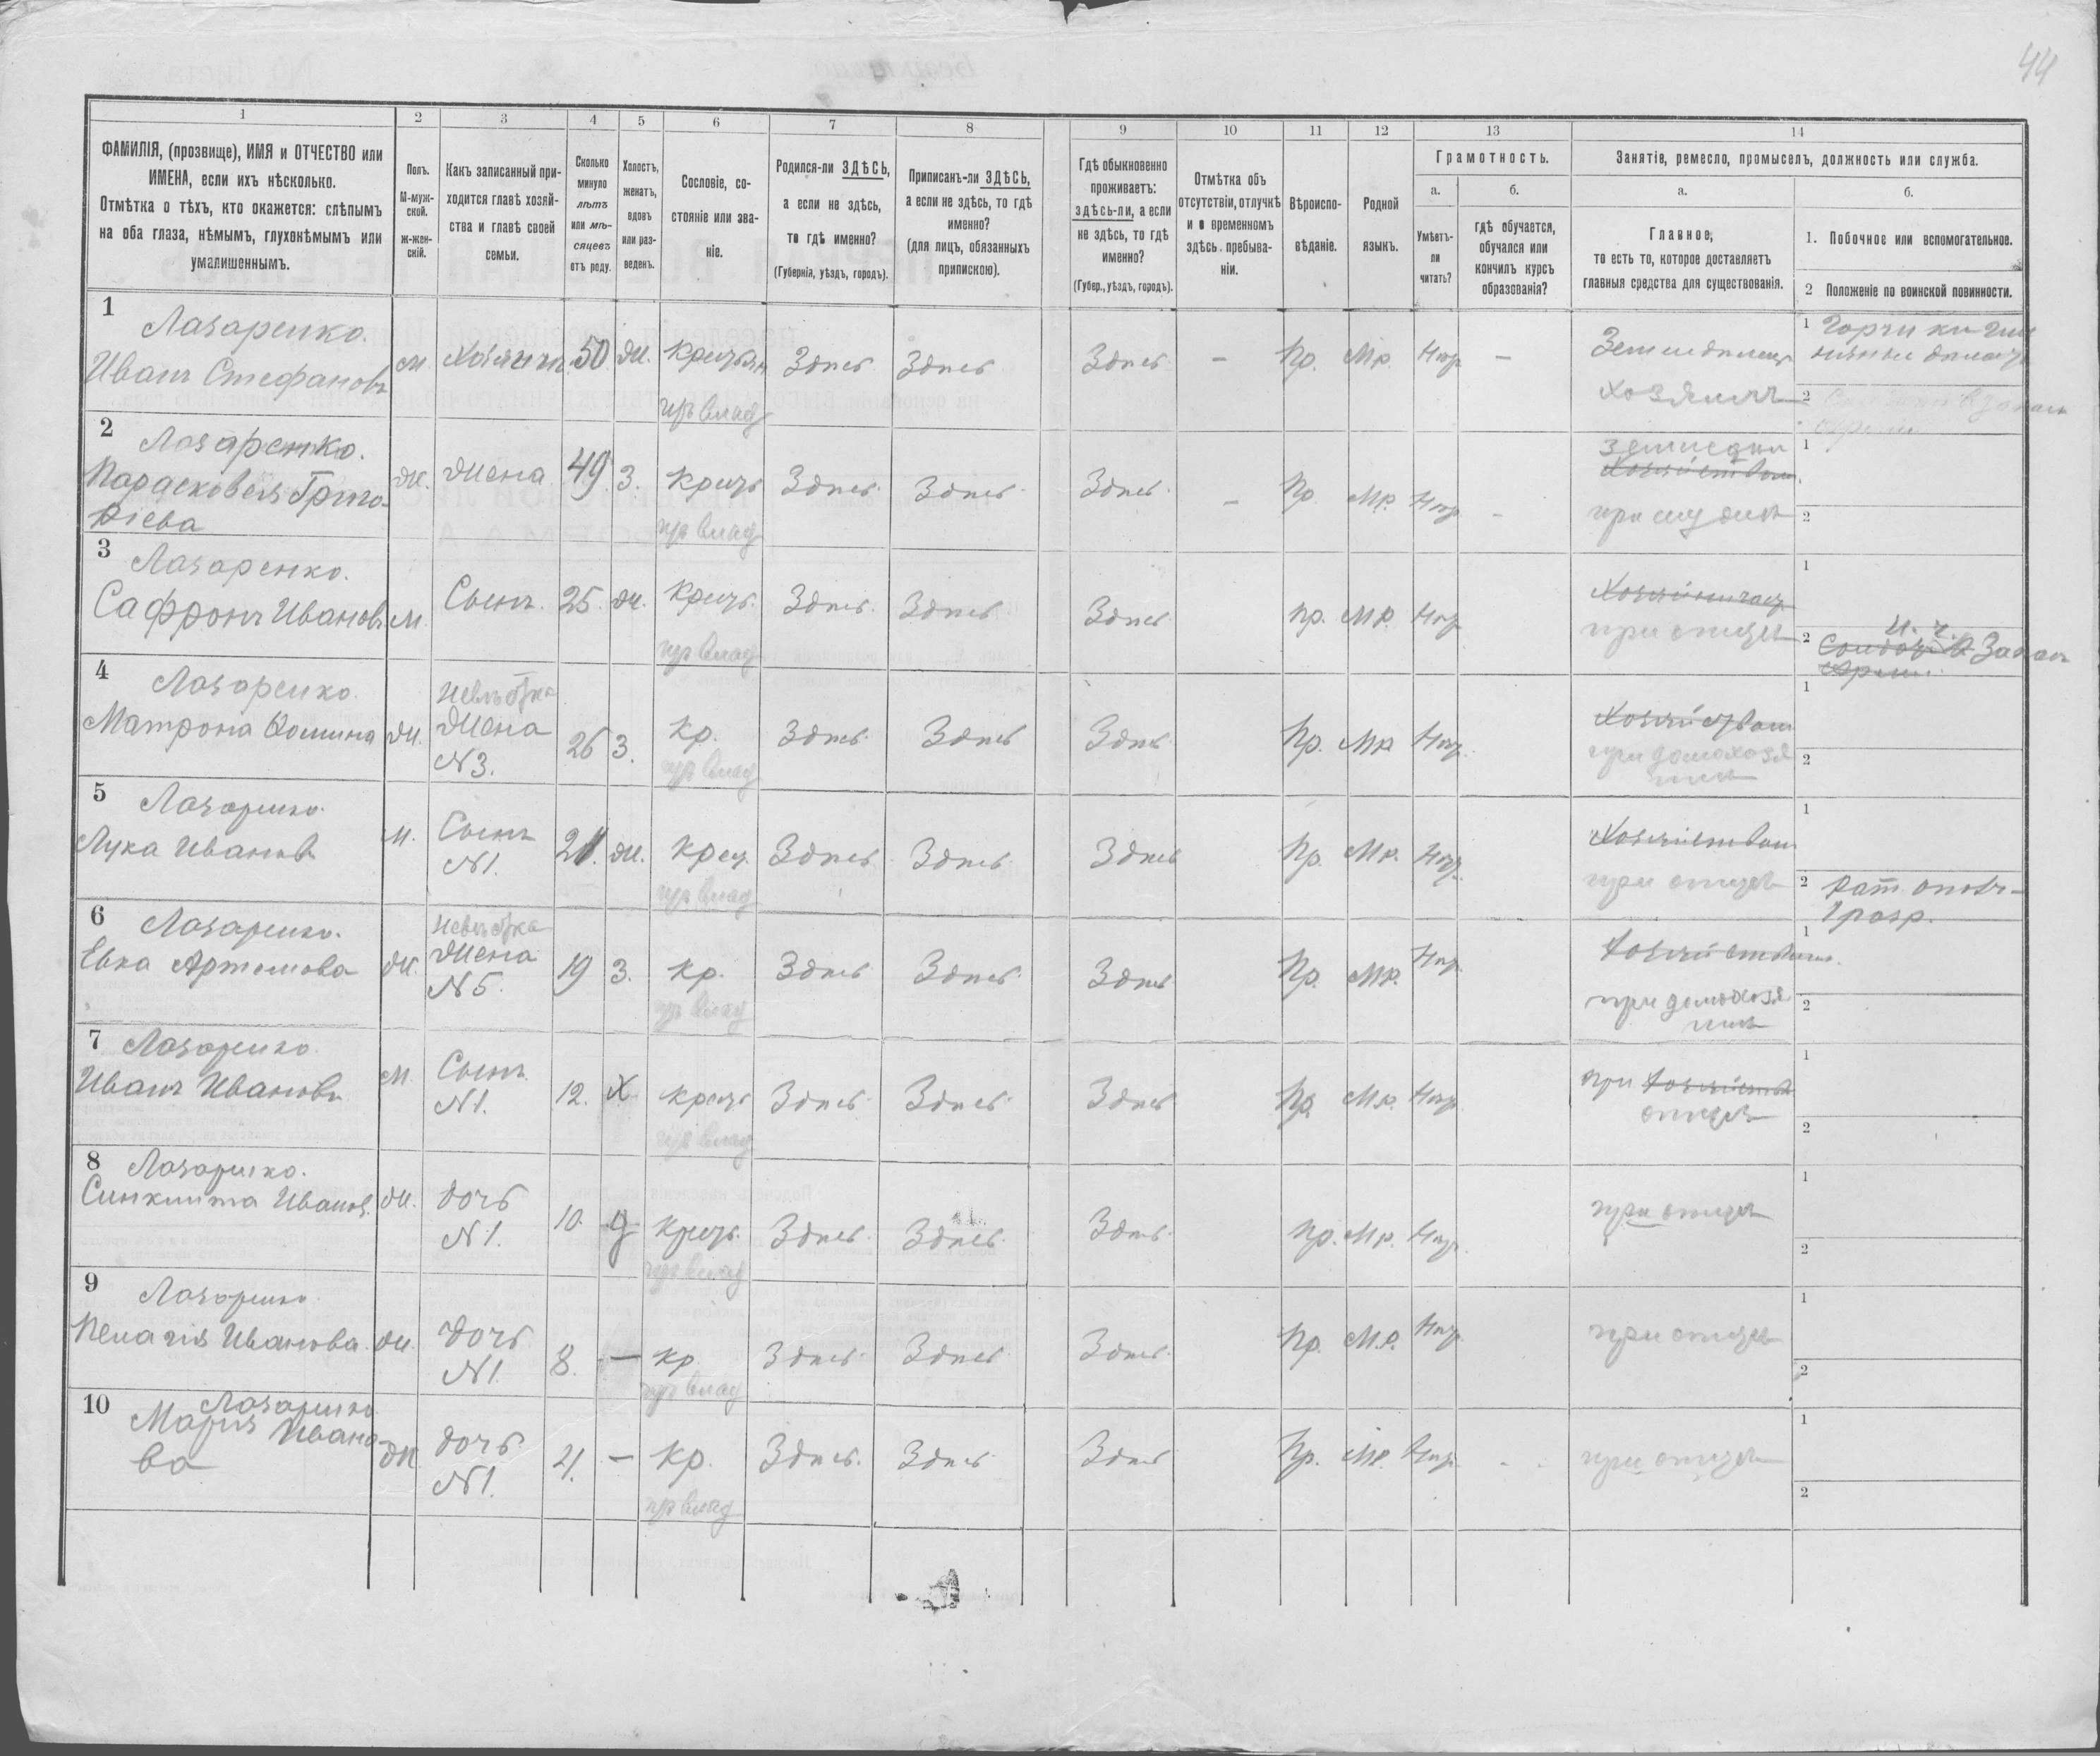 44
1 2 3 4 5 6 7 8 9 10 11 12 13 14
ФАМИЛІЯ, (прозвище), ИМЯ и ОТЧЕСТВО или
ИМЕНА, если ихъ нѣсколько.
Отмѣтка о тѣхъ, кто окажется: слѣпымъ
на оба глаза, нѣмымъ, глухонѣмымъ или
умалишеннымъ.
Полъ.
М-муж-
ской.
ж-жен-
скій.
Какъ записанный при-
ходится главѣ хозяй-
ства и главѣ своей
семьи.
Сколько
минуло
лѣтъ
или мѣ-
сяцевъ
отъ роду.
Холостъ,
женатъ,
вдовъ
или раз-
веденъ.
Сословіе, со-
стояніе или зва-
ніе.
Родился-ли ЗДѢСЬ,
а если не здѣсь,
то гдѣ именно?
(Губернія, уѣздъ, городъ).
Приписанъ-ли ЗДѢСЬ,
а если не здѣсь, то гдѣ
именно?
(для лицъ, обязанныхъ
припискою).
Гдѣ обыкновенно
проживаетъ:
здѣсь-ли, а если
не здѣсь, то гдѣ
именно?
(Губер., уѣздъ, городъ).
Отмѣтка объ
отсутствіи, отлучкѣ
и о временномъ
здѣсь пребыва-
ніи.
Вѣроиспо-
вѣданіе.
Родной
языкъ.
Грамотность.
а.
Умѣетъ-
ли
читать?
б.
гдѣ обучается,
обучался или
кончилъ курсъ
образованія?
Занятіе, ремесло, промыселъ, должность или служба.
а.
Главное,
то есть то, которое доставляетъ
главныя средства для существованія.
б.
1. Побочное или вспомогательное.
2 Положеніе по воинской повинности.
1
Лазаренко.
Иванъ Стефановъ
м Хозяинъ 50 ж. крестьян Здѣсь Здѣсь Здѣсь – Пр. Мр. Нѣтъ –
Земледѣлецъ
хозяинъ
1
2
2
Лазаренко.
Парасковея Григо-
ріева
ж. жена 49 з. крестъ Здѣсь Здѣсь Здѣсь – Пр Мр. Нѣтъ –
1
2
3
Лазаренко.
Сафронъ Ивановъ
м. Сынъ. 25. ж. крест. Здѣсь Здѣсь Здѣсь пр. Мр. Нѣтъ
при отцѣ
1
2
4
Лазаренко.
Матрона Фомина
ж. Невѣстка
жена
N3.
26 з. кр. Здѣсь Здѣсь Здѣсь Пр. Мр Нѣтъ
при домохозя
инѣ
1
2
5
Лазаренко
Лука Ивановъ
м. Сынъ
N1.
21. ж. крест. Здѣсь Здѣсь Здѣсь Пр. Мр. Нѣтъ
при отцѣ
1
2 Рат. ополч-
1 разр.
6
Лазаренко.
Евка Артемова
ж. Невѣстка
жена
N5.
19 з. кр. Здѣсь Здѣсь Здѣсь Пр. Мр. Нѣтъ
при домохозя
инѣ
1
2
7
Лазаренко
Иванъ Ивановъ
м. Сынъ
N1.
12. Х крестъ Здѣсь Здѣсь Здѣсь Пр. Мр. Нѣтъ
при
отцѣ
1
2
8
Лазаренко.
Синклита Иванов.
ж. дочь
N1.
10. крест. Здѣсь Здѣсь Здѣсь пр. Мр. Нѣтъ
при отцѣ
1
2
9
Лазаренко
Пелагія Иванова
ж. дочь
N1.
8. – кр Здѣсь Здѣсь Здѣсь Пр. М.р. Нѣтъ
при отцѣ
1
2
10
Лазаренко
Марія Ивано-
ва
ж дочь
N1.
– кр. Здѣсь Здѣсь Здѣсь Пр. Мр. Нѣтъ
при отцѣ
1
2